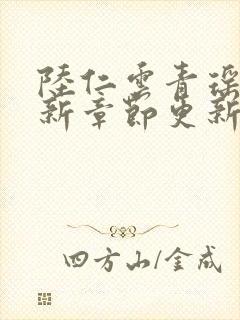 陸仁雲青瑤
新章節更新
四方山/金成